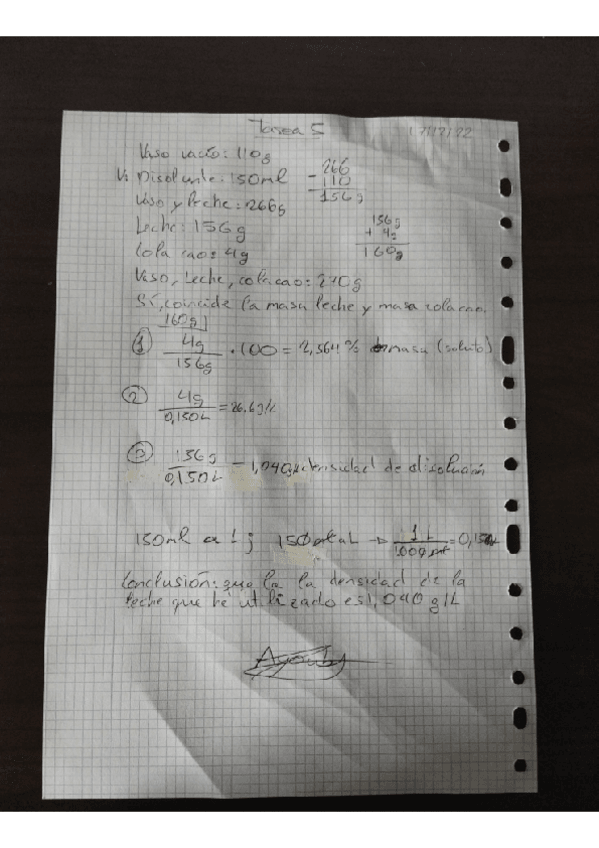 Tarea 5
17/12/22
Vaso vacío: 110g
V: Disolvente: 150ml
Vaso y leche: 266g
Leche: 156g
Cola cao: 4g
266
- 110
156g
156g
+ 4g
160g
Vaso, Leche, colacao: 270g
Sí, coincide la masa leche y masa colacao.
160g
① 4g / 156g · 100 = 2,564% masa (soluto)
② 4g / 0,150L = 26.6g/L
③ 156g / 0,150L = 1,040 densidad de disolución
150ml a L; 150ml a L → 1L / 1000ml = 0,150L
Conclusión: que la la densidad de la
leche que he utilizado es 1,040 g/L
Ayoub